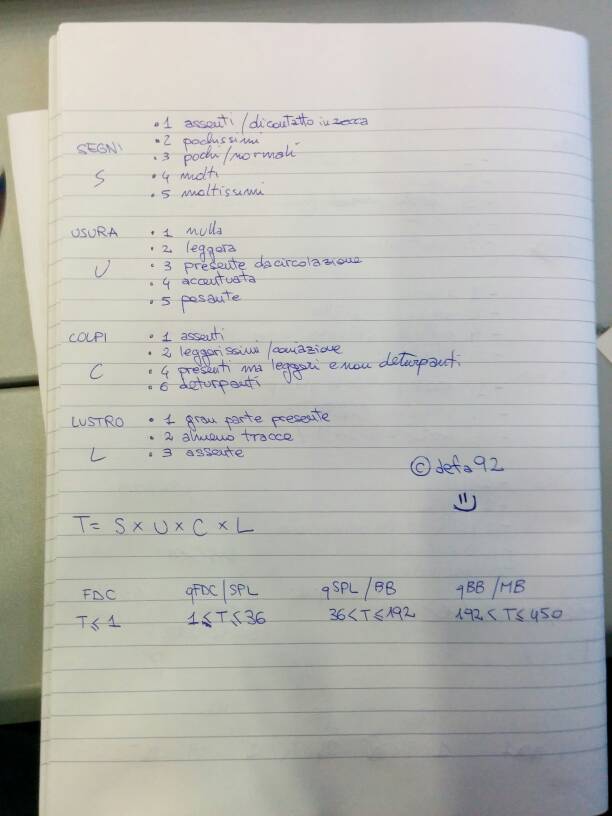 • 1 assenti / di contatto in zecca
SEGNI • 2 pochissimi
• 3 pochi / normali
S • 4 molti
• 5 moltissimi
USURA • 1 nulla
• 2 leggera
U • 3 presente da circolazione
• 4 accentuata
• 5 pesante
COLPI • 1 assenti
• 2 leggerissimi / coniazione
C • 4 presenti ma leggeri e non deturpanti
• 6 deturpanti
LUSTRO • 1 gran parte presente
• 2 almeno tracce
L • 3 assente
© defa92
T = S × U × C × L
FDC qFDC / SPL qSPL / BB qBB / MB
T ≤ 1 1 ≤ T ≤ 36 36 < T ≤ 192 192 < T ≤ 450